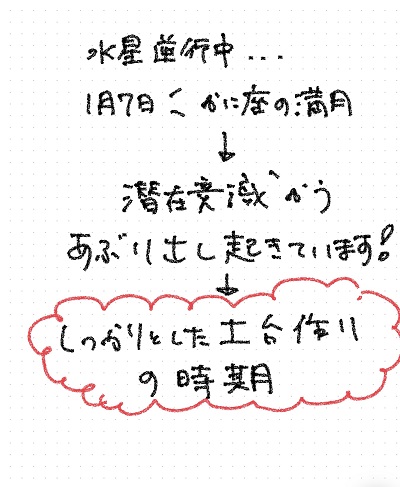 水星逆行中...
1月7日く かに座の満月
↓
潜在意識からう
あぶり出し起きています!
↓
しっかりとした土台作り
の時期